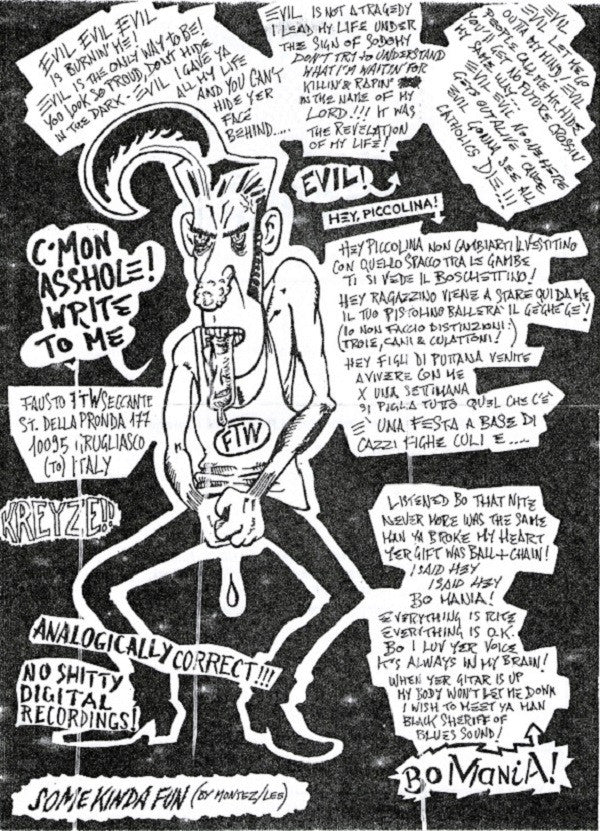 EVIL EVIL EVIL
IS BURNIN' ME!
EVIL IS THE ONLY WAY TO BE!
YOU LOOK SO PROUD, DON'T HIDE
IN THE DARK - EVIL I GAVE YA
ALL MY LIFE
AND YOU CAN'T
HIDE YER
FACE
BEHIND.....
EVIL IS NOT A TRAGEDY
I LEAD MY LIFE UNDER
THE SIGN OF SODOMY
DON'T TRY TO UNDERSTAND
WHAT I'M WAITIN' FOR
KILLIN & RAPIN'
IN THE NAME OF MY
LORD!!! IT WAS
THE REVELATION
OF MY LIFE!
EVIL EVIL LET ME GO
OUTTA MY MIND, EVIL
PEOPLE CALL ME MR. HIDE
YOU'LL GET NO FUTURE CROSSIN'
MY SAME WAY...
EVIL EVIL NO ONE HERE
GETS OUT ALIVE 'CAUSE
EVIL GONNA SEE ALL
CATHOLICS DIE!!!
EVIL!
HEY, PICCOLINA!
HEY PICCOLINA NON CAMBIARTI IL VESTITINO
CON QUELLO SPACCO TRA LE GAMBE
TI SI VEDE IL BOSCHETTINO!
HEY RAGAZZINO VIENE A STARE QUI DA ME
IL TUO PISTOLINO BALLERA' IL GEGHEGE'!
(IO NON FACCIO DISTINZIONI:
TROIE, CANI & CULATTONI!)
HEY FIGLI DI PUTTANA VENITE
A VIVERE CON ME
X UNA SETTIMANA
SI PIGLIA TUTTO QUEL CHE C'È
E' UNA FESTA A BASE DI
CAZZI FIGHE CULI E.....
C'MON
ASSHOLE!
WRITE
TO ME
FAUSTO FTW SECCANTE
ST. DELLA PRONDA 177
10095 GRUGLIASCO
(TO) ITALY
FTW
KREYZE!!
LISTENED BO THAT NITE
NEVER MORE WAS THE SAME
MAN YA BROKE MY HEART
YER GIFT WAS BALL + CHAIN!
I SAID HEY
I SAID HEY
BO MANIA!
EVERYTHING IS RITE
EVERYTHING IS O.K.
BO I LUV YER VOICE
IT'S ALWAYS IN MY BRAIN!
WHEN YER GITAR IS UP
MY BODY WON'T LET ME DOWN
I WISH TO MEET YA MAN
BLACK SHERIFF OF
BLUES SOUND!
BO MANIA!
ANALOGICALLY CORRECT!!!
NO SHITTY
DIGITAL
RECORDINGS!
SOME KINDA FUN (BY MONTEZ/LES)